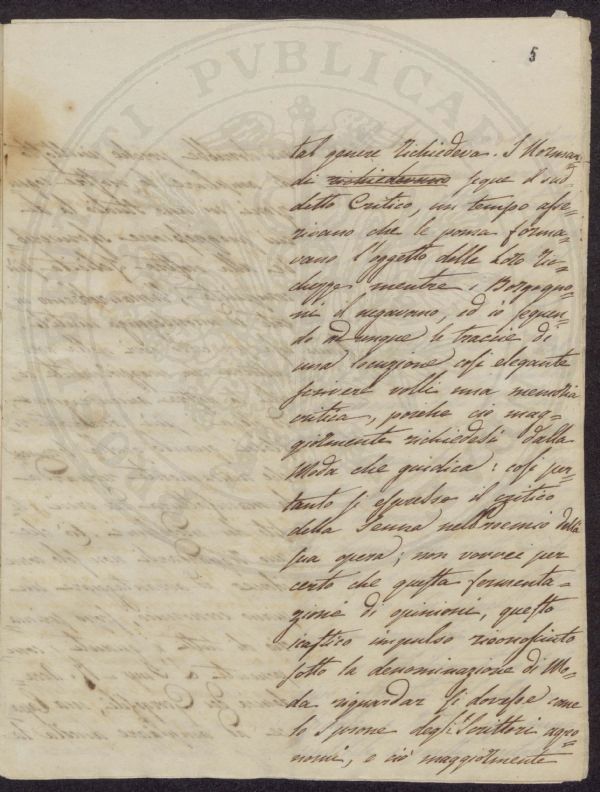 5
tal genere richiedeva. I Norman=
di richiedevano segue il sud=
detto Critico, un tempo asse=
rivano che le poma forma=
vano l'oggetto delle loro ric=
chezze mentre i Borgogno=
ni il negavano, ed io seguen=
do adunque le traccie di
una locuzione così elegante
scrivere volli una memoria
critica, poiche ciò mag=
giormente richiedesi dalla
Moda che giudica: così per=
tanto si espresse il critico
della Senna nel Proemio della
sua opera; non vorrei per
certo che questa fermenta=
zione di opinioni, questo
impulso riconosciuto
sotto la denominazione di Mo=
da riguardar si dovesse come
lo sprone degli Scrittori agro=
nomi, e ciò maggiormente
PUBLICAE